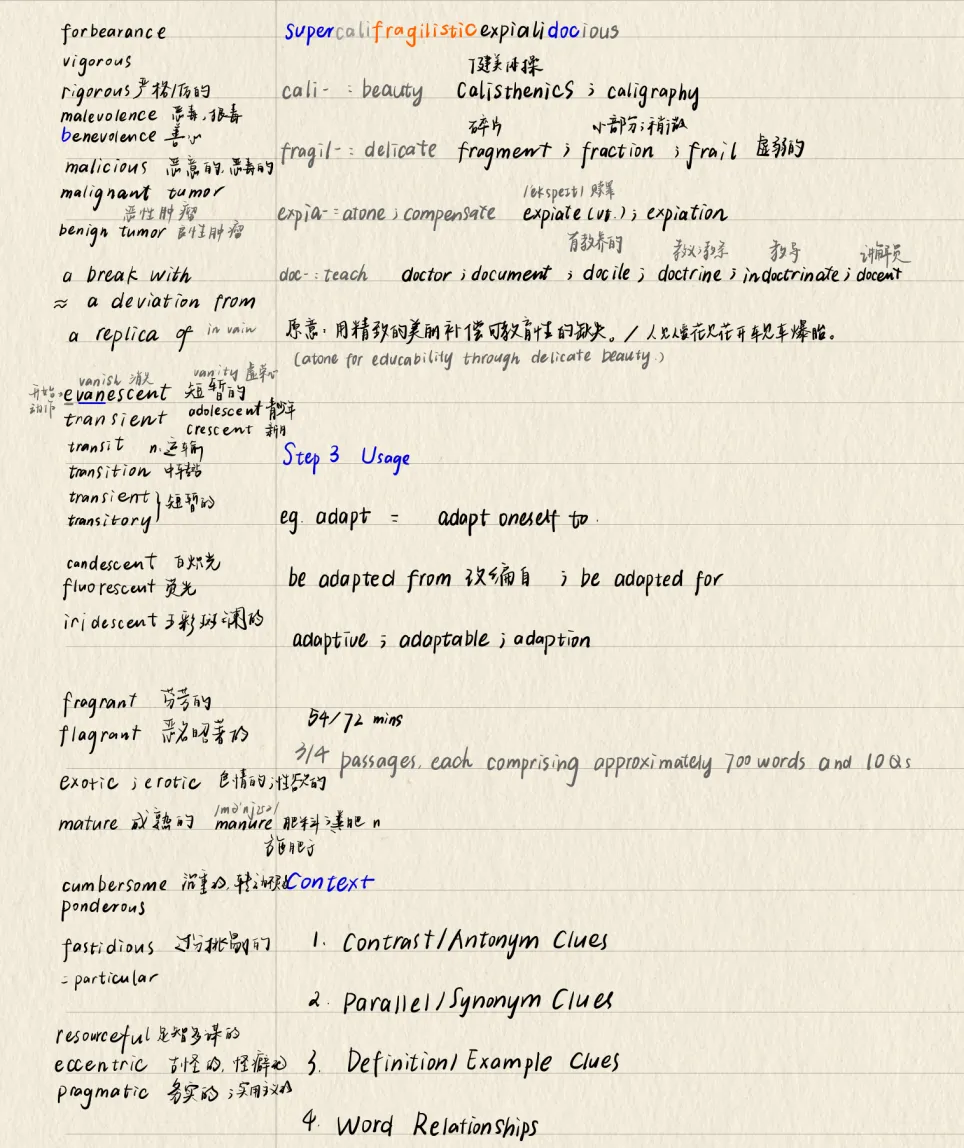 forbearance
vigorous
rigorous 严格的
malevolence 恶毒,狠毒
benevolence 善心
malicious 恶意的,恶毒的
malignant tumor
恶性肿瘤
benign tumor 良性肿瘤
a break with
≈ a deviation from
a replica of in vain
vanish 消失 vanity 虚荣心
开始 evanescent 短暂的
动作
transient adolescent 青少年
crescent 新月
transit n.运输
transition 中转站
transient } 短暂的
transitory
candescent 白炽光
fluorescent 荧光
iridescent 五彩斑斓的
fragrant 芬芳的
flagrant 恶名昭著的
exotic ; erotic 色情的;性欲的
mature 成熟的 manure 肥料;粪肥 n
施肥 v
cumbersome 沉重的,
ponderous
fastidious 过分挑剔的
= particular
resourceful 足智多谋的
eccentric 古怪的,怪癖的
pragmatic 务实的;实用主义的
supercalifragilisticexpialidocious
健美体操
cali- : beauty Calisthenics ; caligraphy
碎片 小部分;稍微
fragil- : delicate fragment ; fraction ; frail 虚弱的
/ekspeɪt/ 赎罪
expia- = atone ; compensate expiate (vt.) ; expiation
有教养的 教义;教条 教导 讲解员
doc- : teach doctor ; document ; docile ; doctrine ; indoctrinate ; docent
原意:用精致的美丽补偿可教育性的缺失。/人见人爱花见花开车见车爆胎。
(atone for educability through delicate beauty.)
Step 3 Usage
eg. adapt = adapt oneself to.
be adapted from 改编自 ; be adapted for
adaptive ; adaptable ; adaption
54/72 mins
3/4 passages, each comprising approximately 700 words and 10 Qs
Context
1. Contrast/Antonym Clues
2. Parallel/Synonym Clues
3. Definition/Example Clues
4. Word Relationships